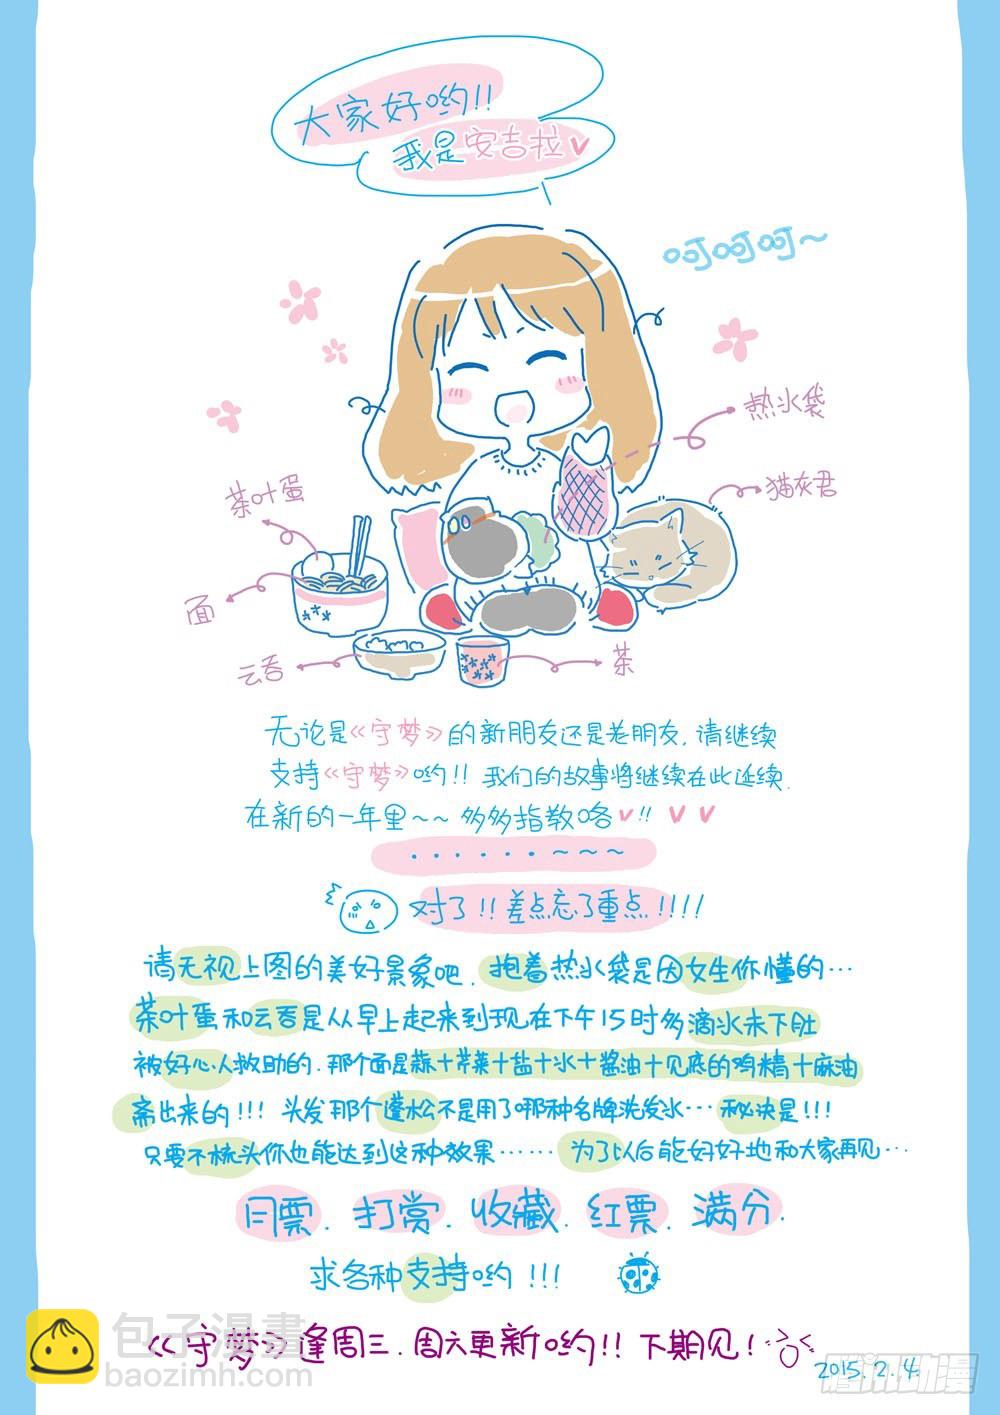 大家好哟!!
我是安吉拉
呵呵呵~
热水袋
猫灰君
茶叶蛋
面
云吞
茶
无论是《守梦》的新朋友还是老朋友.请继续
支持《守梦》哟!! 我们的故事将继续在此延续.
在新的一年里~~多多指教咯!!
······~~~
对了!!差点忘了重点!!!!
请无视上图的美好景象吧.抱着热水袋是因女生你懂的…
茶叶蛋和云吞是从早上起来到现在下午15时多滴水未下肚
被好心人救助的.那个面是蒜+芹菜+盐+水+酱油+见底的鸡精+麻油
斋出来的!!! 头发那个蓬松不是用了哪种名牌洗发水…秘诀是!!!
只要不梳头你也能达到这种效果……为了以后能好好地和大家再见…
月票.打赏.收藏.红票.满分.
求各种支持哟!!!
《守梦》逢周三.周六更新哟!!下期见!
2015.2.4.
包子漫畫
baozimh.com
腾讯动漫